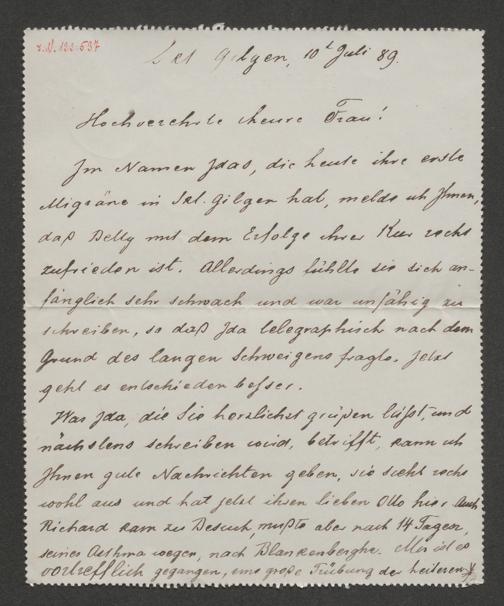 I.N. 122.537
Skt Gilgen, 10t Juli 89.
Hochverehrte theure Frau!
Im Namen Idas, die heute ihre erste
Migräne in Skt. Gilgen hat, melde ich Ihnen,
daß Betty mit dem Erfolge ihrer Kur recht
zufrieden ist. Allerdings fühlte sie sich an-
fänglich sehr schwach und war unfähig zu
schreiben, so daß Ida telegraphisch nach dem
Grund des langen Schweigens fragte. Jetzt
geht es entschieden besser.
Was Ida, die Sie herzlichst grüßen läßt, und
nächstens schreiben wird, betrifft, kann ich
Ihnen gute Nachrichten geben, sie sieht recht
wohl aus und hat jetzt ihren lieben Otto hier. Auch
Richard kam zu Besuch, mußte aber nach 14 Tagen,
seines Asthma wegen, nach Blankenberghe. Mir ist es
vortrefflich gegangen, eine große Trübung der heiteren